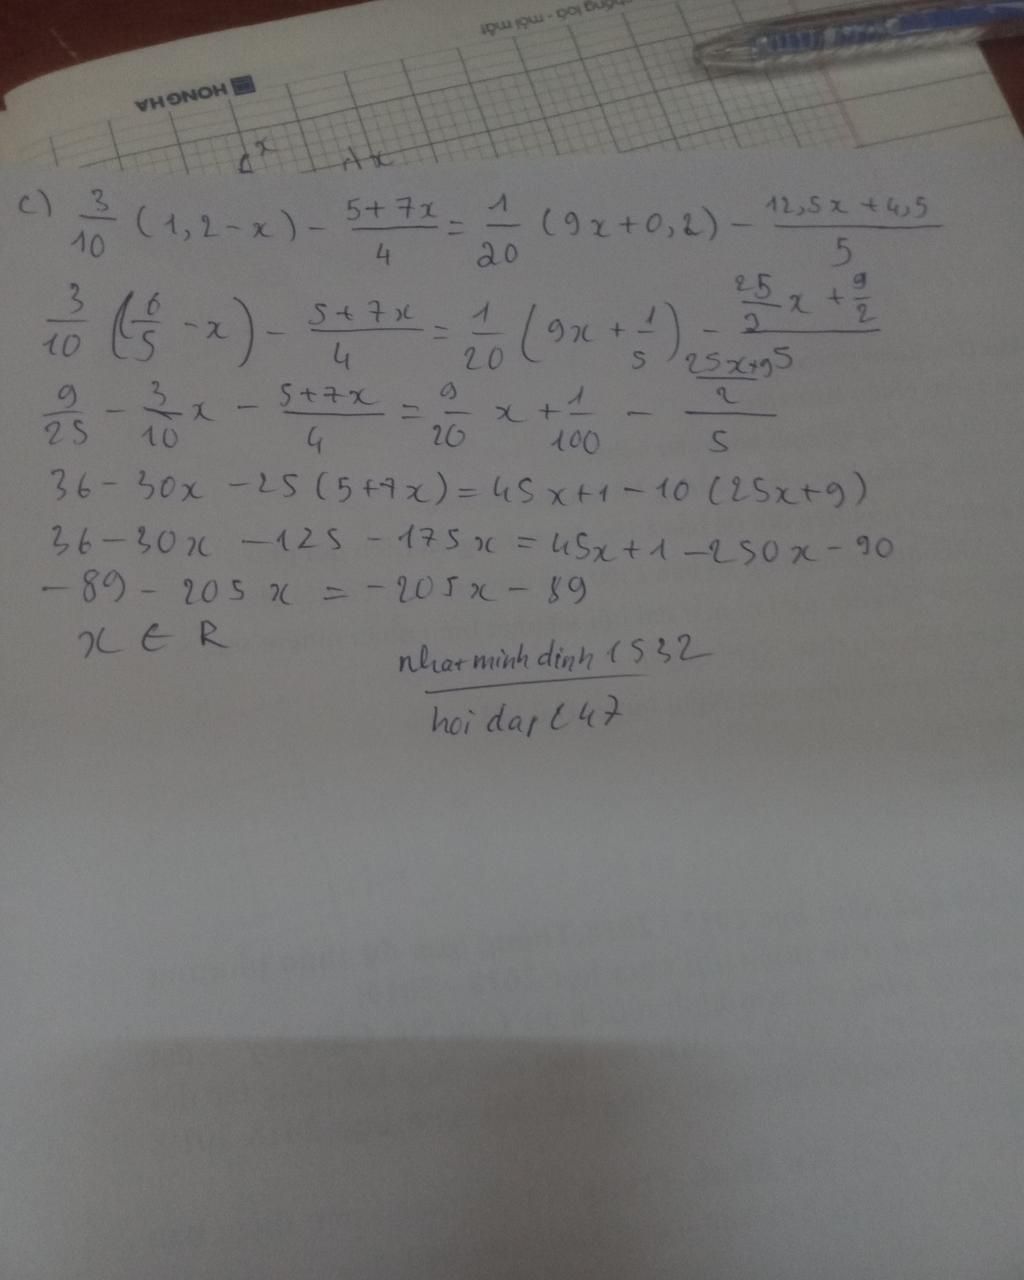 HONG HA
c) 3/10 (1,2 - x) - (5+7x)/4 = 1/20 (9x+0,2) - (12,5x+4,5)/5
3/10 (6/5 - x) - (5+7x)/4 = 1/20 (9x + 1/5) - (25/2 x + 9/2)/5
9/25 - 3/10 x - (5+7x)/4 = 9/20 x + 1/100 - ((25x+9)/2)/5
36 - 30x - 25(5+7x) = 45x+1 - 10(25x+9)
36 - 30x - 125 - 175x = 45x+1 - 250x - 90
-89 - 205x = -205x - 89
x ∈ R
nhatminhdinh1532
hoidap247